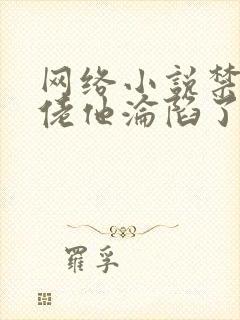 网络小说禁
佬他沦陷了
羅孚